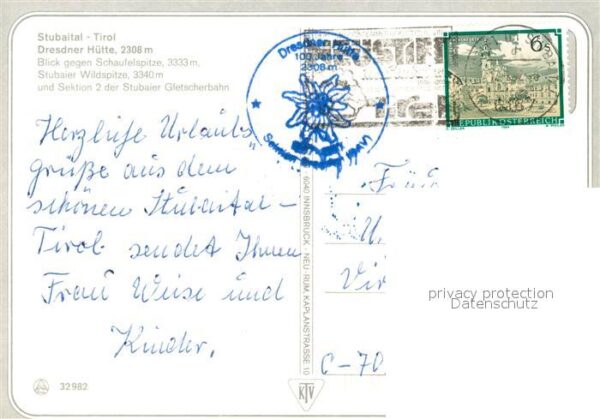 Stubaital - Tirol
Dresdner Hütte, 2308 m
Blick gegen Schaufelspitze, 3333 m,
Stubaier Wildspitze, 3340 m
und Sektion 2 der Stubaier Gletscherbahn
Herzliche Urlaubs
grüße aus dem
schönen Stubaital -
Tirol sendet Ihnen
Frau Weise und
Kinder.
32982
Dresdner Hütte
100 Jahre
2308 m
6 S
REPUBLIK ÖSTERREICH
6040 INNSBRUCK - NEU-RUM, KAPLANSTRASSE 10
KTV
C-70
privacy protection
Datenschutz